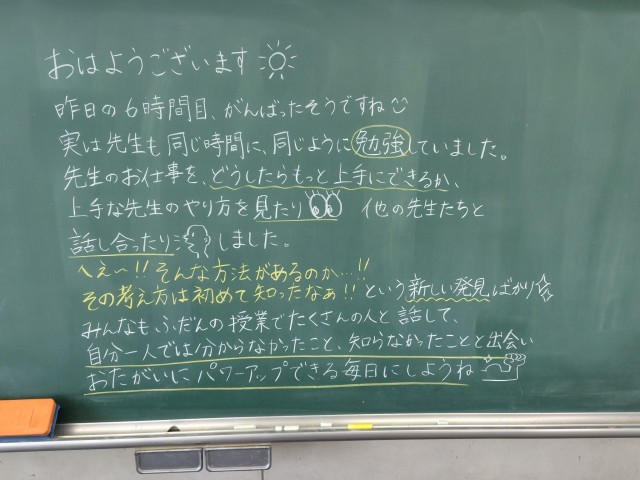 おはようございます
昨日の6時間目、がんばったそうですね
実は先生も同じ時間に、同じように勉強していました。
先生のお仕事を、どうしたらもっと上手にできるか、
上手な先生のやり方を見たり 他の先生たちと
話し合ったりしました。
へぇ〜!!そんな方法があるのか…!!
その考え方は初めて知ったなぁ!!という新しい発見ばかり
みんなも、ふだんの授業でたくさんの人と話して、
自分一人では分からなかったこと、知らなかったことと出会い
おたがいにパワーアップできる毎日にしようね